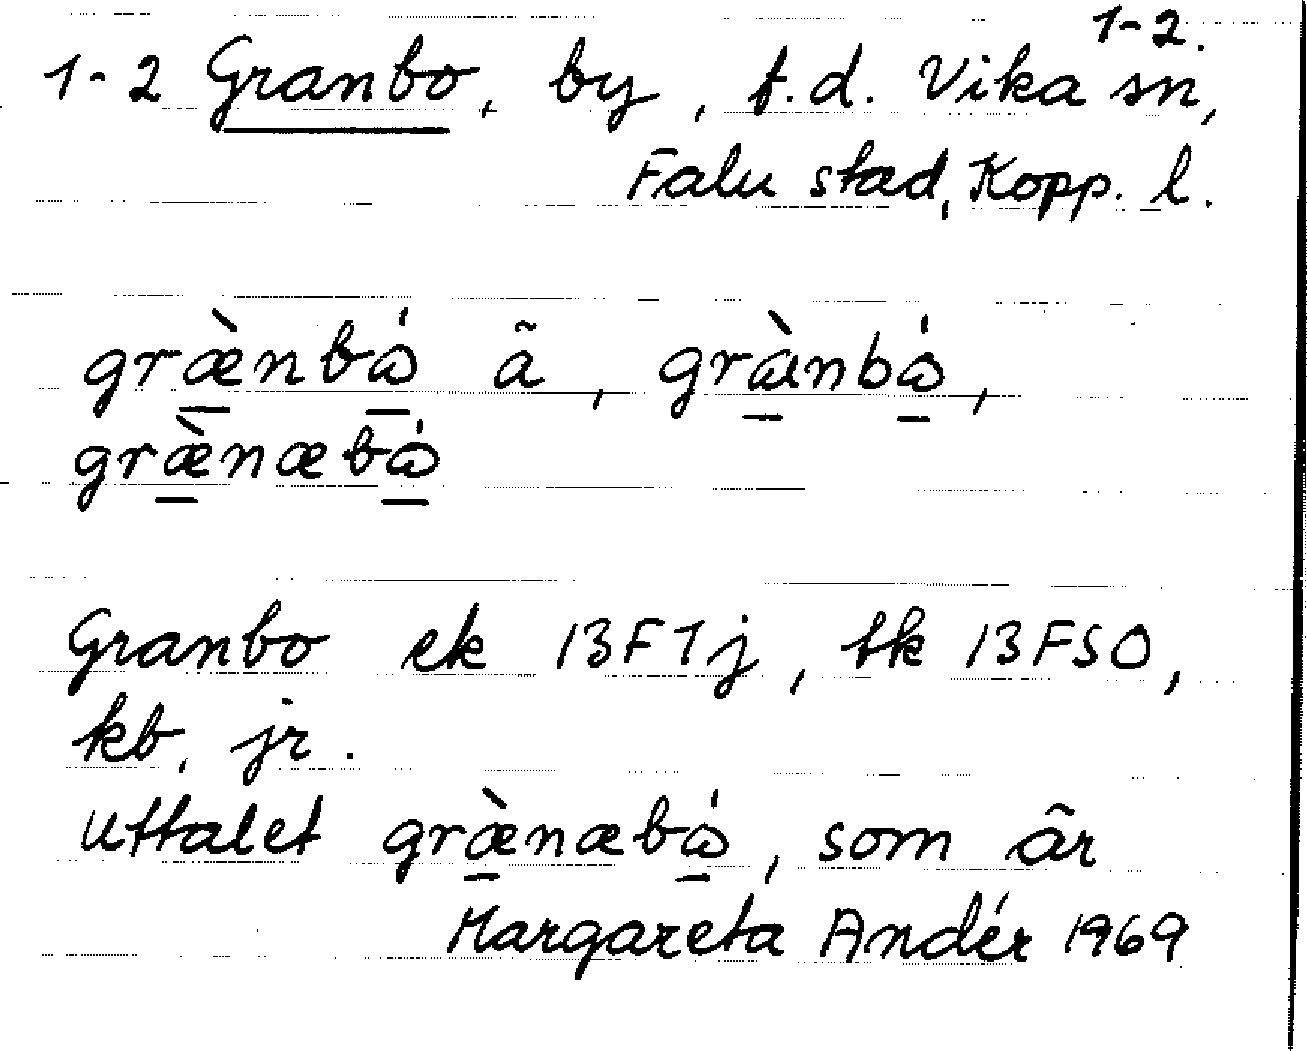 1-2.
1-2 Granbo, by, f.d. Vika sn,
Falu stad, Kopp. l.
græ̀nbώ ã, grànbώ,
græ̀næbώ
Granbo ek 13F1j, tk 13FSO,
kb, jr.
Uttalet græ̀næbώ, som är
Margareta Andér 1969